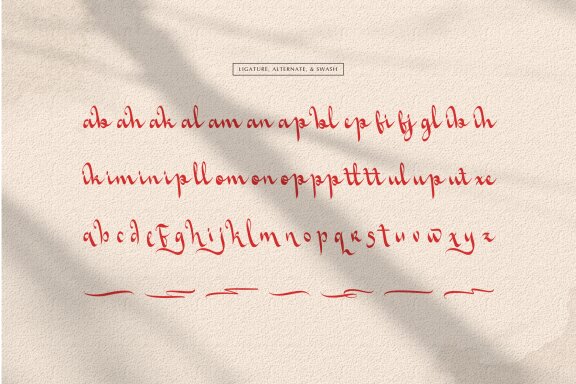 LIGATURE, ALTERNATE, & SWASH
ab ah ak al am an ap bl ep fi fj gl ib ih
ik im in ip ll om on op pp tt tt ul up ut xc
a b c d e f g h i j k l m n o p q r s t u v w x y z